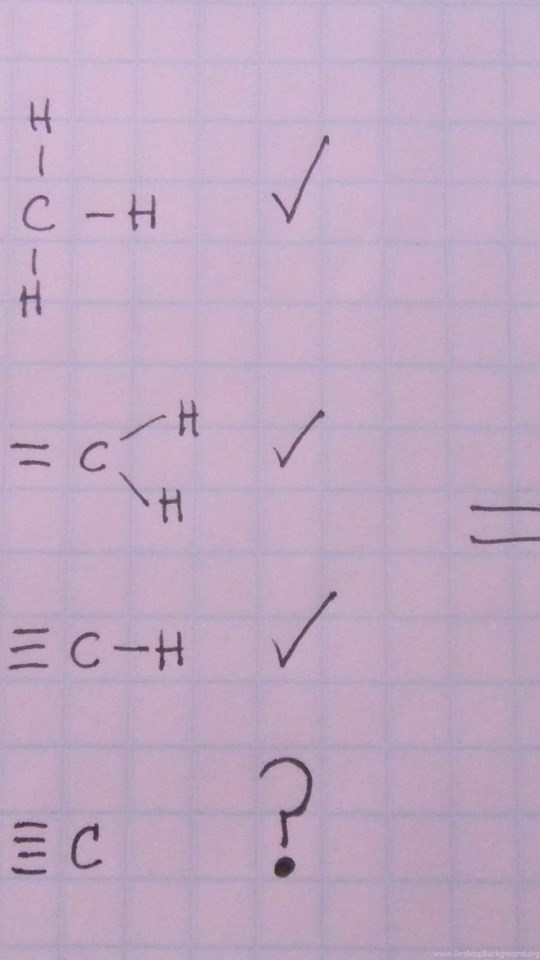 H
|
C — H ✓
|
H
= C H ✓
H =
≡ C — H ✓
≣ C ?
www.DesktopBackground.org